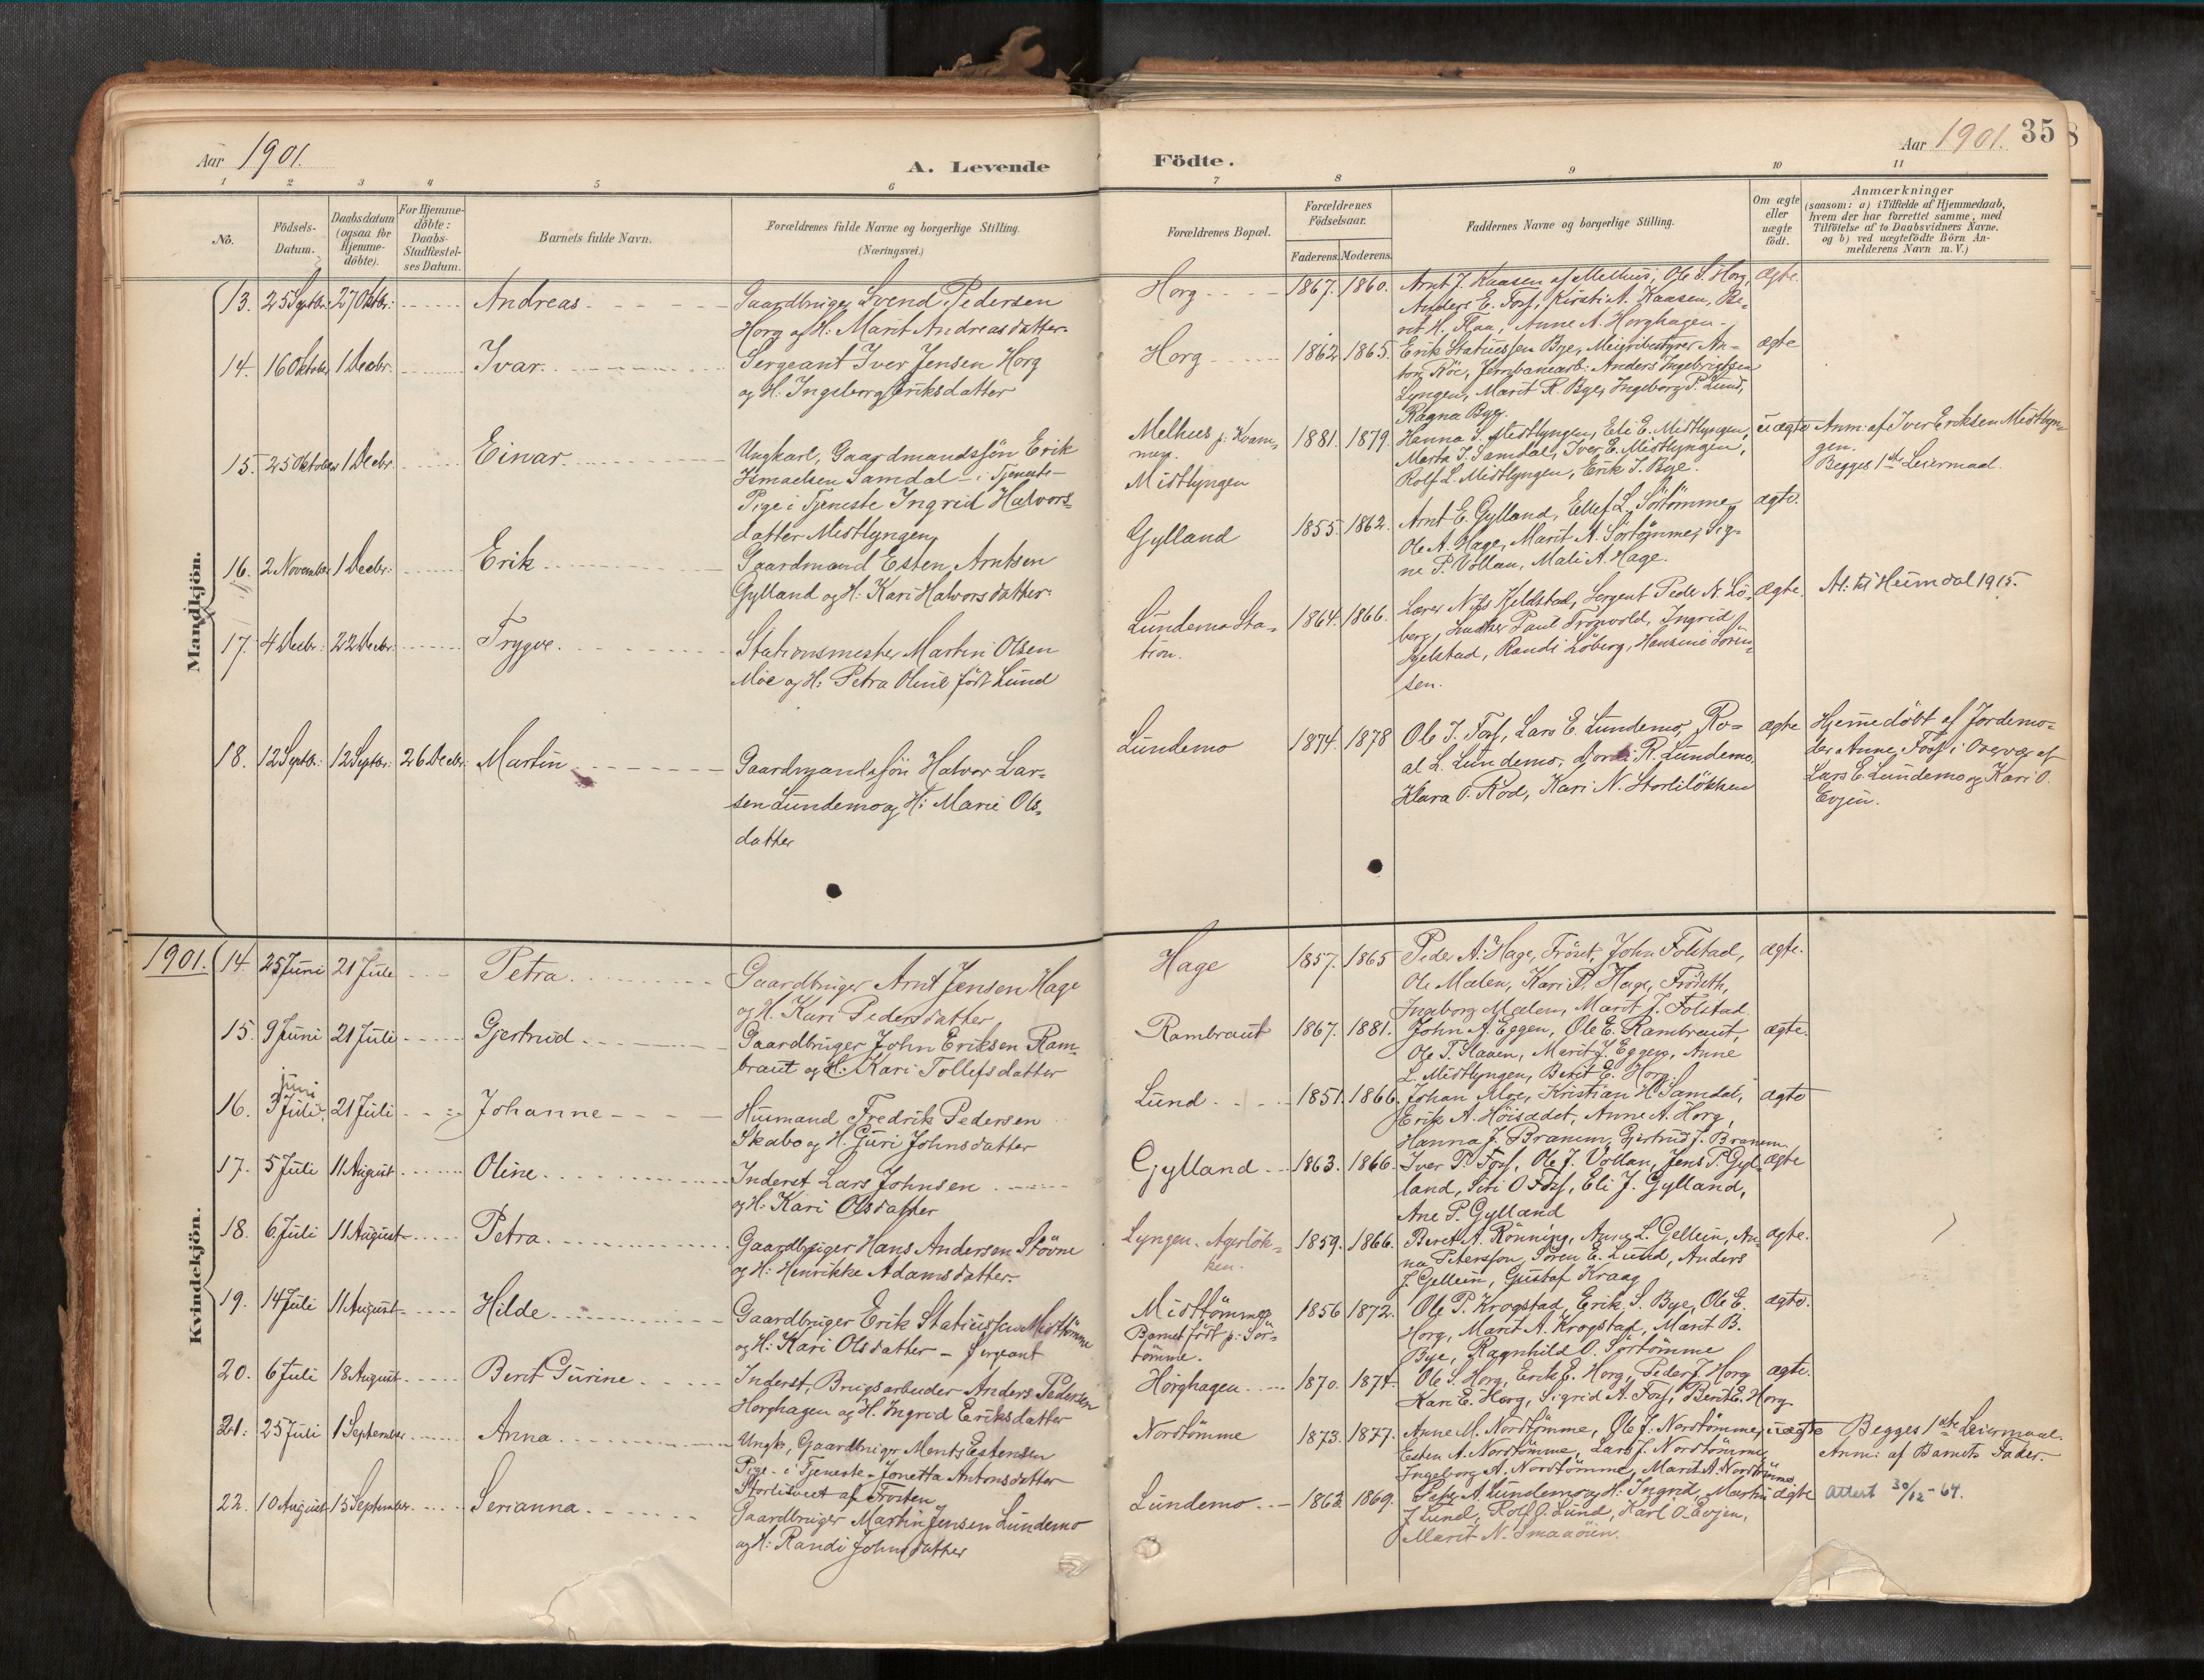 Aar 1901.
A. Levende
Födte.
Aar 1901.
35
1 2 3 4 5 6 7 8 9 10 11
No.
Födsels-
Datum.
Daabsdatum
(ogsaa for
Hjemme-
döbte).
For Hjemme-
döbte:
Daabs-
Stadfæstel-
ses Datum.
Barnets fulde Navn.
Forældrenes fulde Navne og borgerlige Stilling.
(Næringsvei.)
Forældrenes Bopæl.
Forældrenes
Födselsaar.
Faderens. Moderens.
Faddernes Navne og borgerlige Stilling.
Om ægte
eller
uægte
födt.
Anmærkninger
(saasom: a) i Tilfælde af Hjemmedaab,
hvem der har forrettet samme, med
Tilföielse af to Daabsvidners Navne.
og b) ved uægtefödte Börn An-
melderens Navn m. V.)
Mandkjön.
13. 25 Septbr. 27 Oktbr. Andreas
Gaardbruger Svend Pedersen
Horg og H: Marit Andreasdatter
Horg 1867. 1860.
Arnt J. Kaasen af Melhus, Ole S. Horg,
Anders E. Foss, Kirsti A. Kaasen, Be-
rit H. Flaa, Anne A. Horghagen.
ægte.
14. 16 Oktober 1 Decbr. Ivar
Sergeant Iver Jensen Horg
og H: Ingeborg Eriksdatter
Horg 1862 1865.
Erik Statiussen Bye, Meieribestyrer An-
ton Röe, Jernbanearb: Anders Ingebrigtsen
Lyngen, Marit R. Bye, Ingeborg P. Lund,
Ragna Bye.
ægte
15. 25 Oktober 1 Decbr. Einar
Ungkarl, Gaardmandssön Erik
Ismaelsen Samdal – i Tjeneste –
Pige i Tjeneste Ingrid Halvors-
datter Midtlyngen
Melhus p: Kvam-
men.
Midtlyngen
1881. 1879.
Hanna I. Midtlyngen, Eli E. Midtlyngen,
Marta I. Samdal, Iver E. Midtlyngen,
Rolf L. Midtlyngen, Erik I. Bye.
uægte
Anm: af Iver Eriksen Midtlyn-
gen.
Begges 1ste Leiermaal.
16. 2 November 1 Decbr: Erik
Gaardmand Esten Arntsen
Gylland og H: Kari Halvorsdatter
Gylland 1855. 1862.
Arnt E. Gylland, Ellef L. Sörtömme,
Ole A. Hage, Marit A. Sörtömme, Sig-
ne P. Vollan, Mali A. Hage.
ægte.
17. 4 Decbr: 22 Decbr: Trygve
Stationsmester Martin Olsen
Moe og H: Petra Oline födt Lund
Lundemo Sta-
tion.
1864. 1866.
Lærer Nils Kjelstad, Sergent Peder N. Lö-
berg, Paul Ingrid
Kjelstad, Randi Löberg, Hansine Sören-
sen.
ægte.
At: til Heimdal 1915.
18. 12 Septbr: 12 Septbr: 26 Decbr: Martin
Gaardmandssön Halvor Lar-
sen Lundemo og H: Marie Ols-
datter
Lundemo 1874. 1878
Ole J. Foss, Lars E. Lundemo, Ro-
al L. Lundemo, R. Lundemo,
Klara O. Rod, Kari N. Storlilökken
ægte
Hjemmedöbt af Jordemo-
der Anne Foss i Overvær af
Lars E. Lundemo og Kari O.
Evjen.
Kvindekjön.
1901. 14. 25 Juni 21 Juli Petra
Gaardbruger Arnt Jensen Hage
og H. Kari Pedersdatter
Hage 1857. 1865
Peder A. Hage, Fröset, John Folstad,
Ole Mælen, Kari P. Hage, Fröseth,
Ingeborg Mælen, Marit J. Folstad.
ægte.
15. 9 Juni 21 Juli Gjertrud
Gaardbruger John Eriksen Ram-
braut og H: Kari Tollefsdatter
Rambraut 1867. 1881.
John A. Eggen, Ole E. Rambraut,
Ole T. Haaen, Marit J. Eggen, Anne
L. Midtlyngen, Berit E. Horg.
ægte.
juni
16. 3 Juli 21 Juli Johanne
Husmand Fredrik Pedersen
Skabo og H. Guri Johnsdatter
Lund 1851. 1866.
Johan Moe, Kristian H. Samdal,
Erik A. Höisædet, Anne A. Horg,
Hanna J. Branum, Gjertrud J. Branum.
ægte
17. 5 Juli 11 August Oline
Inderst Lars Johnsen
og H: Kari Olsdatter
Gylland 1863. 1866.
Iver P. Foss, Ole J. Vollan, Jens P. Gyl-
land, Siri O. Foss, Eli J. Gylland,
Ane P. Gylland
ægte
18. 6 Juli 11 August Petra
Gaardbruger Hans Andersen Stövne
og H: Henrikke Adamsdatter
Lyngen. Agerlök-
ken.
1859. 1866.
Beret A. Rönning, Anne L. Gellein, An-
na Petersson, Sören E. Lund, Anders
J. Gellein, Gustaf Kraag
ægte.
19. 14 Juli 11 August Hilde
Gaardbruger Erik Statiussen Midttömme
og H: Kari Olsdatter – Sergeant
Midttömme
Barnet födt p: Sör-
tömme.
1856 1872.
Ole P. Krogstad, Erik S. Bye, Ole E.
Horg, Marit A. Krogstad, Marit B.
Bye, Ragnhild O. Sörtömme
ægte.
20. 6 Juli 18 August Berit Gurine
Inderst, Brugsarbeider Anders Pedersen
Horghagen og H. Ingrid Eriksdatter
Horghagen 1870. 1874.
Ole S. Horg, Erik E. Horg, Peder J. Horg
Kari E. Horg, Sigrid A. Foss, Berit E. Horg
ægte.
21. 25 Juli 1 September Anna
Ungk, Gaardbruger Ments Estensen
Pige – i Tjeneste – Jonetta Antonsdatter
af Frosten
Nordtömme 1873. 1877.
Anne M. Nordtömme, Ole J. Nordtömme,
Esten A. Nordtömme, Lars J. Nordtömme,
Ingeborg A. Nordtömme, Marit A. Nordtömme
uægte
Begges 1ste Leiermaal.
Anm: af Barnets Fader.
22. 10 August 15 September Serianna
Gaardbruger Martin Jensen Lundemo
og H: Randi Johnsdatter
Lundemo 1862 1869.
A. Lundemo og H: Ingrid, Martin
J. Lund, Rolf O. Lund, Karl O. Evjen,
Marit N. Smaaöien.
ægte
Attest 30/12-64.